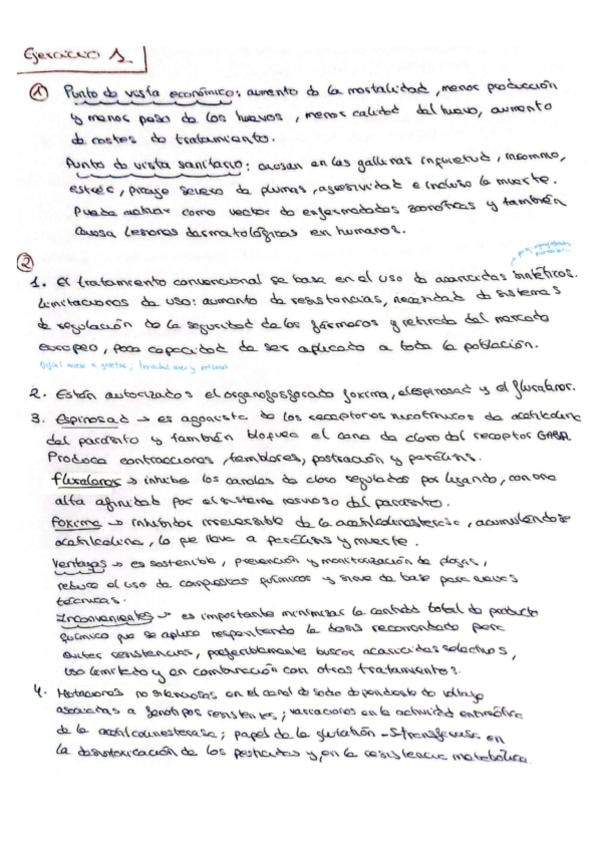 Ejercicio 1
① Punto de vista económico: aumento de la mortalidad, menor producción
y menor peso de los huevos, menor calidad del huevo, aumento
de costes de tratamiento.
Punto de vista sanitario: causan en las gallinas inquietud, insomnio,
estrés, picaje severo de plumas, agresividad e incluso la muerte.
Puede actuar como vector de enfermedades zoonóticas y también
causa lesiones dermatológicas en humanos.
②
1. El tratamiento convencional se basa en el uso de acaricidas sintéticos.
Limitaciones de uso: aumento de resistencias, necesidad de sistemas
de regulación de la seguridad de los fármacos y retirada del mercado
europeo, poca capacidad de ser aplicado a toda la población.
Difícil acceso a grietas; toxicidad aves y personas
2. Están autorizados el organofosforado foxima, el espinosad y el fluralaner.
3. Espinosad → es agonista de los receptores nicotínicos de acetilcolina
del parásito y también bloquea el canal de cloro del receptor GABA.
Produce contracciones, temblores, postración y parálisis.
Fluralaner → inhibe los canales de cloro regulados por ligando, con una
alta afinidad por el sistema nervioso del parásito.
Foxima → inhibidor irreversible de la acetilcolinesterasa, acumulándose
acetilcolina, lo que lleva a parálisis y muerte.
Ventajas → es sostenible, prevención y monitorización de plagas,
reduce el uso de compuestos químicos y sirve de base para nuevas
técnicas.
Inconvenientes → es importante minimizar la cantidad total de producto
químico que se aplica respetando la dosis recomendada para
evitar resistencias, preferiblemente buscar acaricidas selectivos,
uso limitado y en combinación con otros tratamientos.
4. Mutaciones no silenciosas en el canal de sodio dependiente de voltaje
asociadas a genotipos resistentes; variaciones en la actividad enzimática
de la acetilcolinesterasa; papel de la glutatión-S-transferasa en
la desintoxicación de los pesticidas y en la resistencia metabólica.